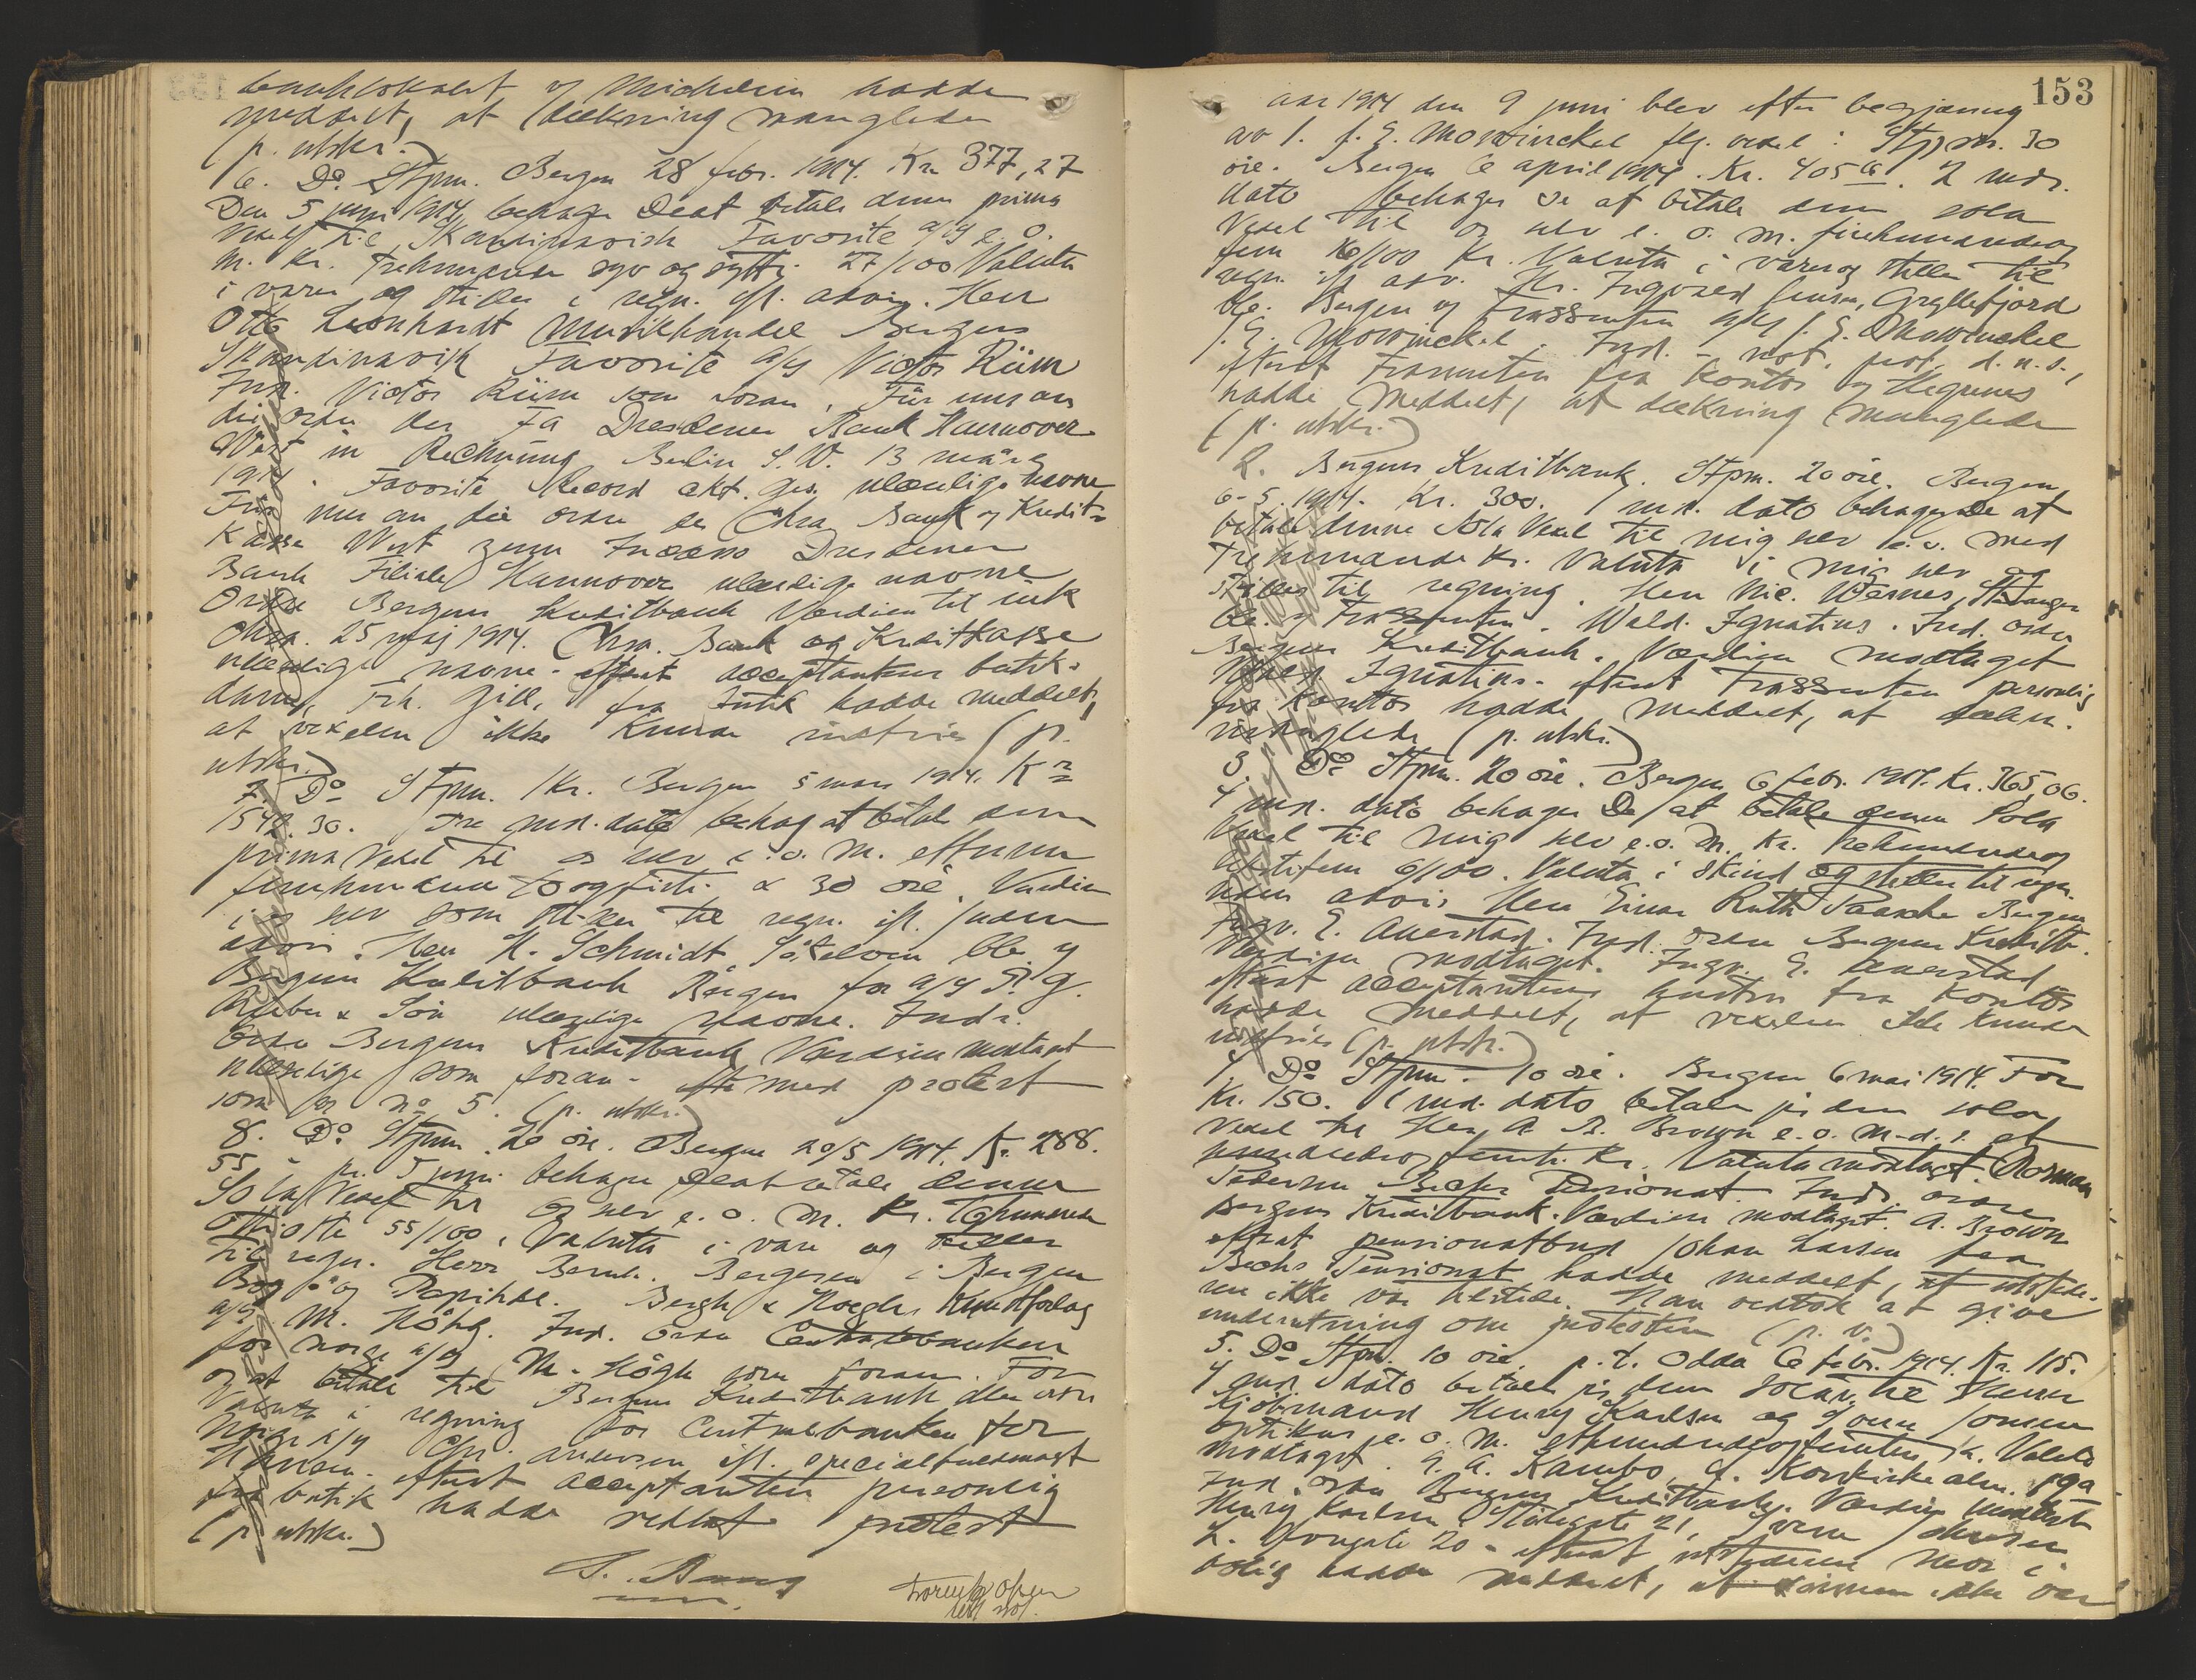 banklokalet og Michelsen hadde
meddelt, at dækning manglede
(p. utskr.)
6. Do. Stpm. Bergen 28 febr. 1914. Kr. 377,27
Den 5 juni 1914 behage De at betale denne prima
Vexel til Skandinavisk Favorite a/s e. o.
m. Kr. Trehundrede syv og sytti 27/100 Valuta
i varer og stilles i regn. ifl. advis. Herr
Otto Leonhardt Musikhandel Bergen
Skandinavisk Favorite a/s Victor Riim
Ind. Victor Riim som foran. Für uns an
die Order der Fa Dresdener Bank Hannover
Wert in Rechnung Berlin S. W. 13 märz
1914. Favorite Record akt. ges. ulæselige navne
Für uns an die order der Chra. Bank og Kredit-
kasse Wert zum Incasso Dresdener
Bank Filiale Hannover ulæselige navne
Ordre Bergens Kreditbank Værdien til ink
Chra. 25 maj 1914. Chra. Bank og Kreditkasse
ulæselige navne - efterat acceptantens butik-
dame, Frk. Gill, fra butik hadde meddelt,
at vexelen ikke kunde indfries (p.
utskr.)
7. Do Stpm. 1 Kr. Bergen 5 mars 1914. Kr
1542.30. Tre md. dato behag at betale denne
prima Vexel til os selv e. o. m. ettusen
femhundrede toogførti & 30 øre. Værdien
i os selv som stilles til regn. ifl. / uden
advis. Herr H. Schmidt, Sötelven Ble. og
Bergens Kreditbank Bergen for a/s R. G.
& Sön ulæselige navne. Inds.
Ordre Bergens Kreditbank Værdien mottaget
ulæselige som foran - efter med protest
som for no 5. (p. utskr.)
8. Do. Stpm. 20 øre. Bergen 20/5 1914. Kr. 288.
55 - pr. 5 juni behage De at betale denne
Sola Vexel til os selv e. o. m. Kr. Tohundrede
ottiotte 55/100, Valuta i vare og stilles
til regn. Herr Bernh. Bergersen i Bergen
Bog- og Papirhdl. Bergh & Høeghs Kunstforlag
a/s M. Høhg. Ind. Ordre Centralbanken
for Norge a/s M. Høgh som foran. For
os at betale til Bergens Kreditbank eller ordre
Valuta i regning for Centralbanken for
Norge a/s Chr. Andersen ifl. specialfuldmagt
Hansen - efterat acceptanten personlig
fra butik hadde vedtat protest
(p. utskr.)
S. Bang
Lorentz Olsen
not.

153
Aar 1914 den 9 juni blev efter begjæring
av 1. J. E. Mowinckel flg. vexel: Stpm. 30
øre. Bergen 6 april 1914. Kr. 405 16. 2 mdr.
dato behager De at betale denne sola
Vexel til os selv e. o. m. firehundredeog
fem 16/100 Kr. Valuta i varer og stilles til
regn. ifl. adv. Hr. Ingvald Jensen, Gryllefjord
Ble. Bergen og Trassenten a/s J. E. Mowinckel
J. E. Mowinckel. Ind. - not. prot. d. n. s.,
efterat Trassenten fra kontor og Hegrenes
hadde meddelt, at dækning manglede
(p. utskr.)
2. Bergens Kreditbank. Stpm. 20 øre. Bergen
6-5. 1914. Kr. 300. 1 md. dato behager De at
betale denne Sola Vexel til mig selv e. o. med
Trehundrede Kr. Valuta i mig selv og
stilles til regning. Herr Nic. Wernes, Stavanger
Ble. og Trassenten. Wald. Ignatius. Ind. ordre
Bergens Kreditbank. Værdien modtaget
Wald. Ignatius - efterat Trassenten personlig
fra kontor hadde meddelt, at dækn.
manglede (p. utskr.)
3. Do Stpm. 20 øre. Bergen 6 febr. 1914. Kr. 365,06.
4 md. dato behager De at betale denne Sola
Vexel til mig selv e. o. m. Kr. Trehundredeog
sekstifem 6/100. Valuta i skind og stilles til regn.
uden advis Herr Einar Ruth Paasche Bergen
Ingv. E. Auestad. Ind. ordre Bergens Kreditb.
Værdien modtaget. Ingv. E. Auestad
efterat acceptantens hustru fra kontor
hadde meddelt, at vexelen ikke kunde
indfries (p. utskr.)
4. Do Stpm. 10 øre. Bergen 6 mai 1914. For
Kr. 150. 1 md. dato betaler jeg denne sola
Vexel til Herr A. R. Brown e. o. m. d. s. et
hundredeog femti Kr. Valuta modtaget. Norman
Pedersen Bechs Pensionat. Inds. ordre
Bergens Kreditbank. Værdien modtaget. A. Brown
efterat pensionatbud Johan Larsen fra
Bechs Pensionat hadde meddelt, at utstede-
ren ikke var tilstede. Han vedtok at give
underretning om protesten (p. v.)
5. Do Stpm. 10 øre. p. t. Odda 6 febr. 1914. Kr. 115.
4 md. dato betaler jeg denne sola til Herrer
Kjöbmand Henry Karlsen og Sören
Optikus e. o. m. ethundredeogfemten Kr. Valuta
modtaget. E. A. Rambo, St. Korskirkealm. 19a
Ind. ordre Bergens Kreditbank. Værdien modtaget
Henry Karlsen Strandgate 21, Sören
L. Øvregate 20 - efterat utstederens mor i
bolig hadde meddelt, at sönnen ikke var